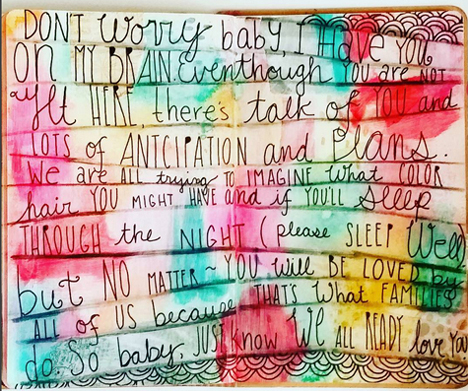 DON'T worry baby, I Have YOU
ON MY BRAIN. Eventhough YOU are NOT
yet HERE, there's talk of YOU and
LOTS of ANTCIPATION and Plans.
We are ALL trying TO IMAGINE what COLOR
hair YOU MIGHT HAVE and if YOU'LL Sleep
THROUGH the NIGHT (please SLEEP Well)
but NO MATTER ~ YOU will BE LOVED by
ALL of US because THATS What FAMILIES
do. So baby, JUST know WE ALL READY love You